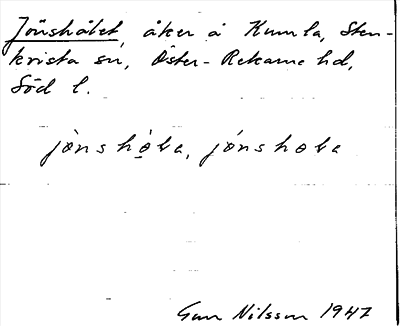 Jönshålet, åker å Kumla, Sten-
kvista sn, Öster-Rekarne hd,
Söd l.
jònshọ̀la, jónshola
Gun Nilsson 1947